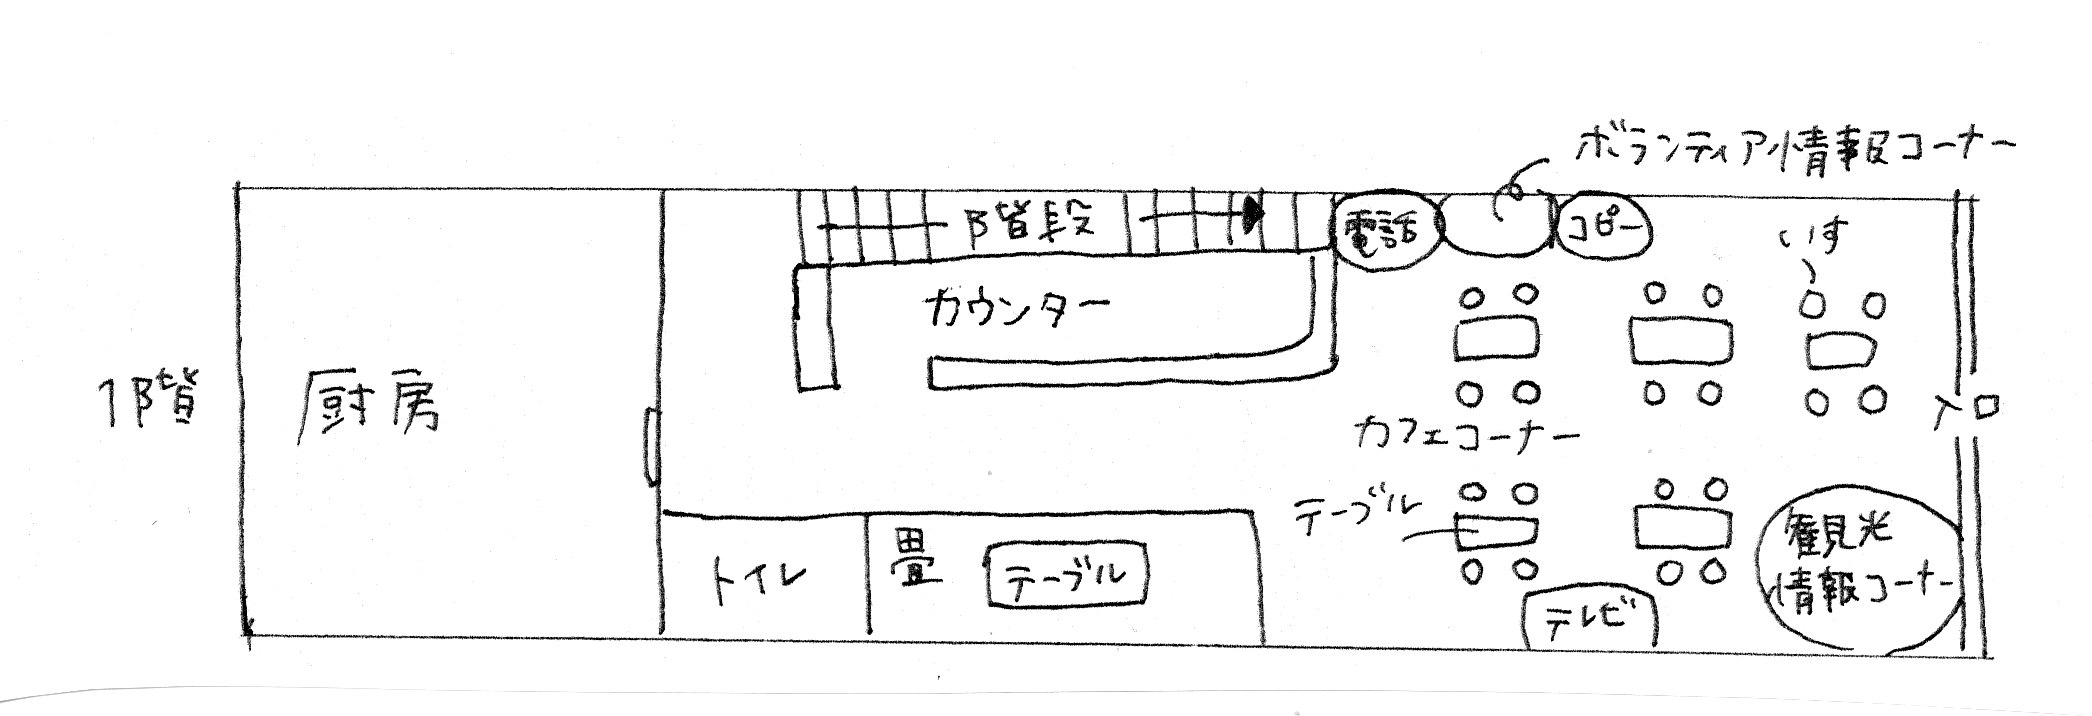 ボランティア情報コーナー
階段
電話
コピー
いす
カウンター
1階
厨房
入口
カフェコーナー
テーブル
観光
情報コーナー
畳
テーブル
トイレ
テレビ